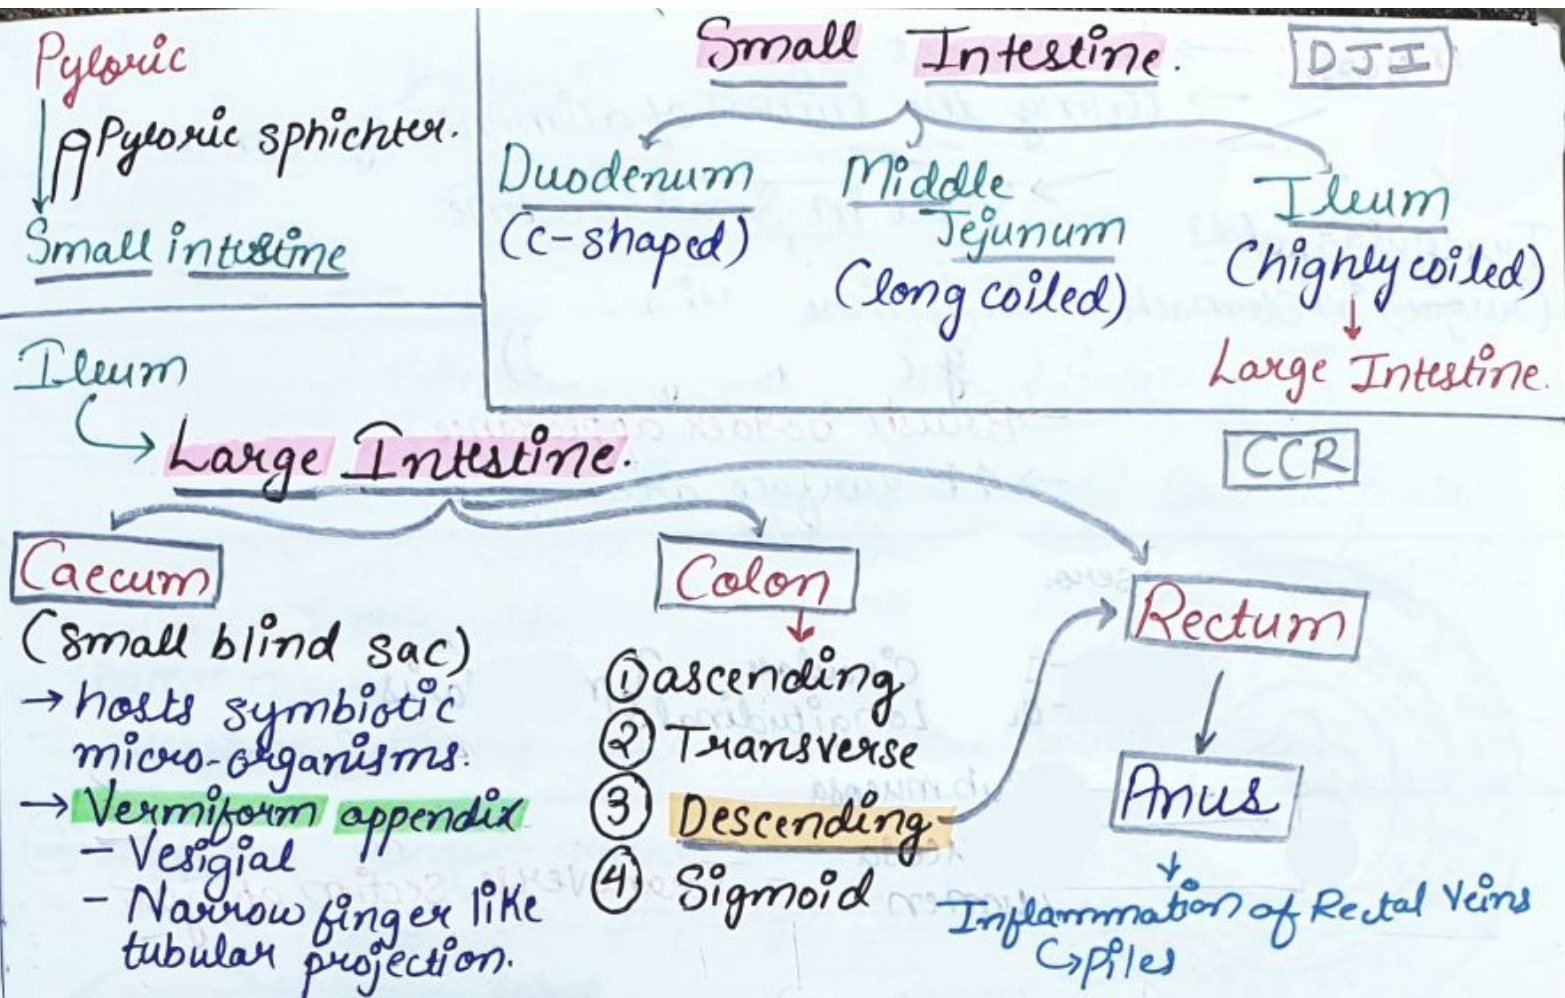 Pyloric
Pyloric sphichter.
Small intestine
Small Intestine.
DJI
Duodenum
(c-shaped)
Middle
Jejunum
(long coiled)
Ileum
(highly coiled)
Large Intestine.
Ileum
Large Intestine.
CCR
Caecum
(small blind sac)
→ hosts symbiotic
micro-organisms.
→ Vermiform appendix
- Vesigial
- Narrow finger like
tubular projection.
Colon
① ascending
② Transverse
③ Descending
④ Sigmoid
Rectum
Anus
Inflammation of Rectal Veins
↳ piles